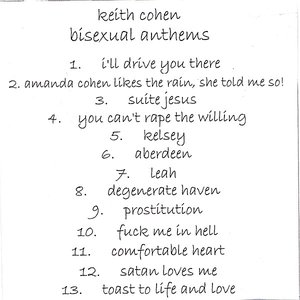 keith cohen
bisexual anthems
1. i'll drive you there
2. amanda cohen likes the rain, she told me so!
3. suite jesus
4. you can't rape the willing
5. kelsey
6. aberdeen
7. leah
8. degenerate haven
9. prostitution
10. fuck me in hell
11. comfortable heart
12. satan loves me
13. toast to life and love